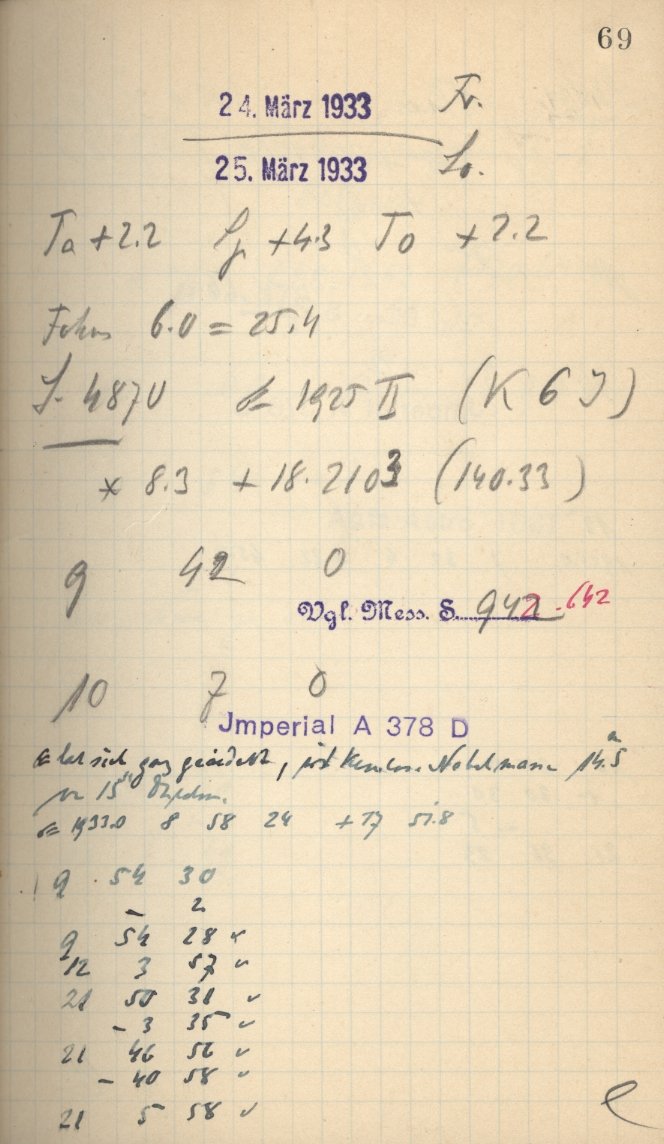 69
24. März 1933 Fr.
25. März 1933 So.
Ta +2.2 +4.3 To +2.2
Fokus 6.0 = 25.4
J. 4870 1925 II (K 6 J)
* 8.3 +18.2103 (140.33)
9 42 0
Vgl. Mess. S. 942.642
10 7 0
Jmperial A 378 D
hat sich ganz geändert, ist 14.5
15"
= 1933.0 8 58 24 +17 51.8
9 54 30
- 2
9 54 28 ✓
12 3 57 ✓
21 50 31 ✓
- 3 35 ✓
21 46 56 ✓
- 40 58 ✓
21 5 58 ✓